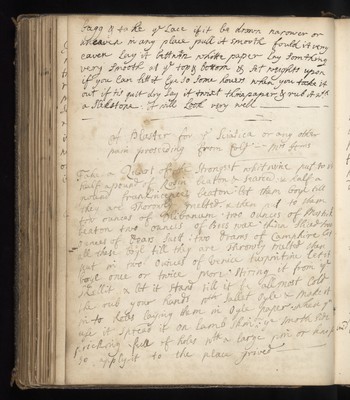 ragg & take ye Lace if it be drawn narrower or
uneaven in any place pull it smooth fould it very
eaven Lay it between white paper Lay somthing
very smooth at ye top & bottom & set weights upon
if you can let it Lye so some houers when you take it
out if tis quit dry Lay it twixt thin paper & rub it with
a slickstone it will Look very well
A Plaster for ye Sciatica or any other
pain proceeding from Cold Mrs
Take a Quart of ye Strongest whit wine put to it
half a pound of Rosin beaten & searced & half a
pound frankincense beaten let them boyl till
they are thorowly melted & then put to them
fore ounces of Olibanum two ounces of Mastick
beaten two ounces of bees wax thin sliced two
ounces of Dears Suet two Drams of Camphire let
all these boyl till they are thorowly melted then
put in two ounces of Venice turpintine let it
boyle once or twice more stiring it from ye
skellit & let it stand till it be all most Cold
yn rub your hands with sallet oyle & make it
in to Roles laying them in oyle paper when you
use it spread it on Lamb skin ye smooth side
pricking full of holes with a large pin or
so apply it to the place grived